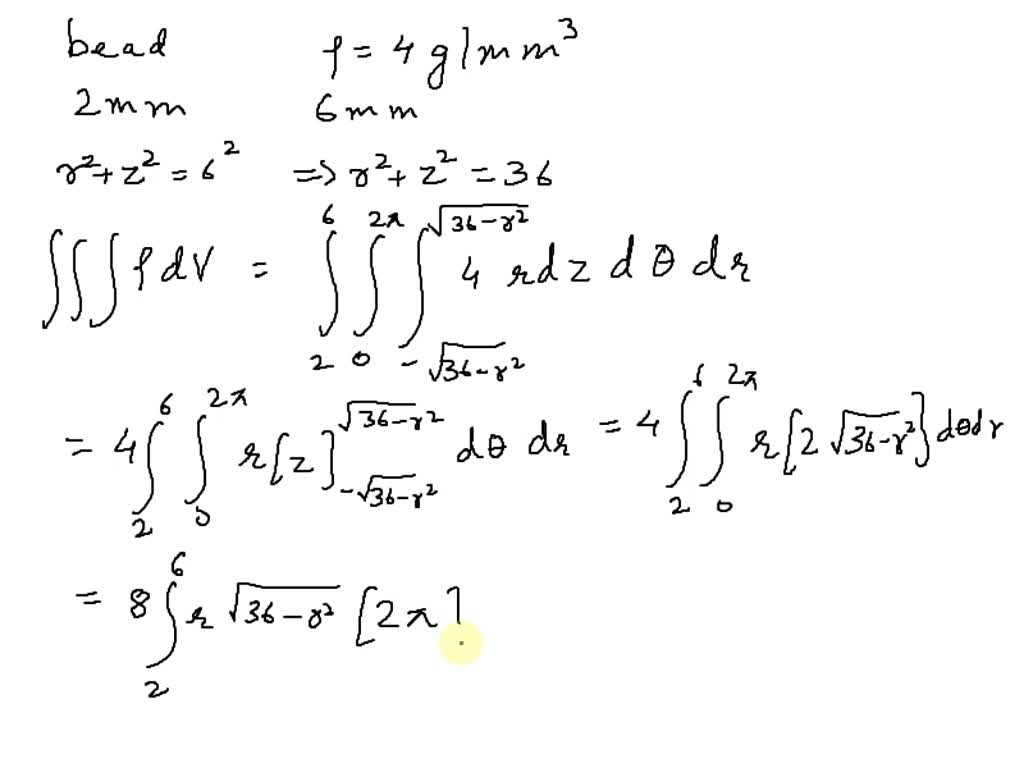 bead ρ = 4 g/mm³
2mm 6mm
r² + z² = 6² ⇒ r² + z² = 36
∭ ρ dV = ∫₂⁶ ∫₀^{2π} ∫_{-√(36-r²)}^{√(36-r²)} 4 r dz dθ dr
= 4 ∫₂⁶ ∫₀^{2π} r [z]_{-√(36-r²)}^{√(36-r²)} dθ dr = 4 ∫₂⁶ ∫₀^{2π} r [2 √(36-r²)] dθ dr
= 8 ∫₂⁶ r √(36-r²) [2π]